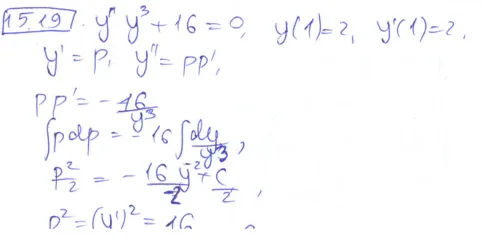 15.19. y'' y³ + 16 = 0, y(1) = 2, y'(1) = 2.
y' = p, y'' = pp',
pp' = - 16/y³
∫pdp = - 16 ∫dy/y³,
p²/2 = - 16 y⁻²/-2 + C/2,
p² = (y')² = 16